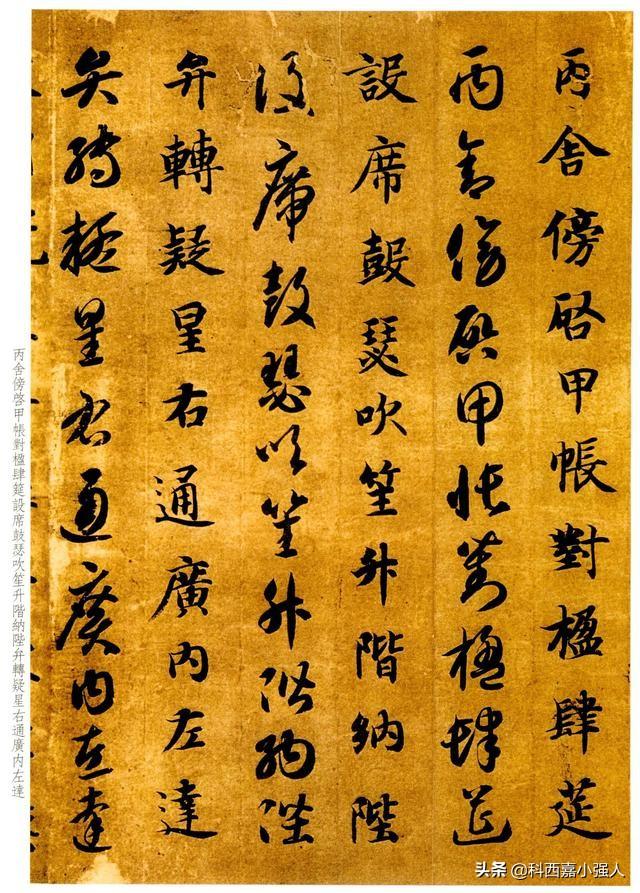 丙舍傍啓甲帳對楹肆筵
丙舍傍啓甲帳對楹肆筵
設席鼓瑟吹笙升階納陛
設席鼓瑟吹笙升階納陛
弁轉疑星右通廣内左達
弁轉疑星右通廣内左達
丙舍傍啓甲帳對楹肆筵設席鼓瑟吹笙升階納陛弁轉疑星右通廣内左達
头条 @科西嘉小强人